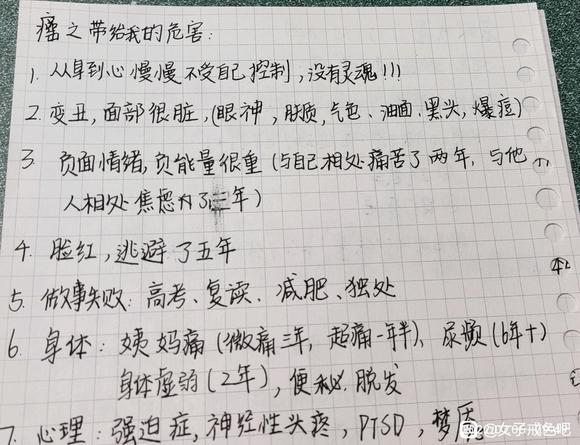 瘾之带给我的危害:
1. 从身到心慢慢不受自己控制,没有灵魂!!!
2. 变丑,面部很脏,(眼神,肤质,气色、油面、黑头,爆痘)
3 负面情绪,负能量很重(与自己相处痛苦了两年,与他
人相处焦虑了三年)
4. 脸红,逃避了五年
5. 做事失败:高考、复读、减肥、独处
6. 身体:姨妈痛(微痛三年,超痛一年半)、尿频(6年+)
身体虚弱(2年),便秘,脱发
7. 心理:强迫症,神经性头疼,PTSD,梦魇
女子戒色吧